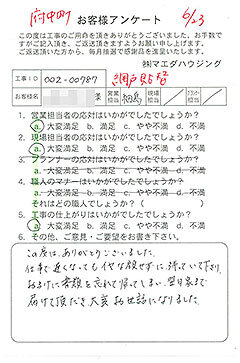 府中町 お客様アンケート 6/23
この度は工事のご用命を頂きありがとうございました。お手数で
すがご記入頂き、ご返送頂きますようお願い申し上げます。
ご返送頂いた方から、毎月抽選で感謝品を進呈いたします。
㈱マエダハウジング
工事ID 002-00787 網戸貼替
お客様名 様 営業担当 現場担当
1. 営業担当者の応対はいかがでしたでしょうか?
a. 大変満足 b. 満足 c. やや不満 d. 不満
2. 現場担当者の応対はいかがでしたでしょうか?
a. 大変満足 b. 満足 c. やや不満 d. 不満
3. プランナーの応対はいかがでしたでしょうか?
a. 大変満足 b. 満足 c. やや不満 d. 不満
4. 職人のマナーはいかがでしたでしょうか?
a. 大変満足 b. 満足 c. やや不満 d. 不満
それはどの職人でしょうか?( )
5. 工事の仕上がりはいかがでしたでしょうか?
a. 大変満足 b. 満足 c. やや不満 d. 不満
6. その他、ご意見・ご要望をお書き下さい。
この度は、ありがとうございました。
仕事で遅くなっても イヤな顔せずに 待っていて下り、
おまけに書類を忘れて帰ってしまい、翌日家まで
届けて頂だき 大変お世話になりました。